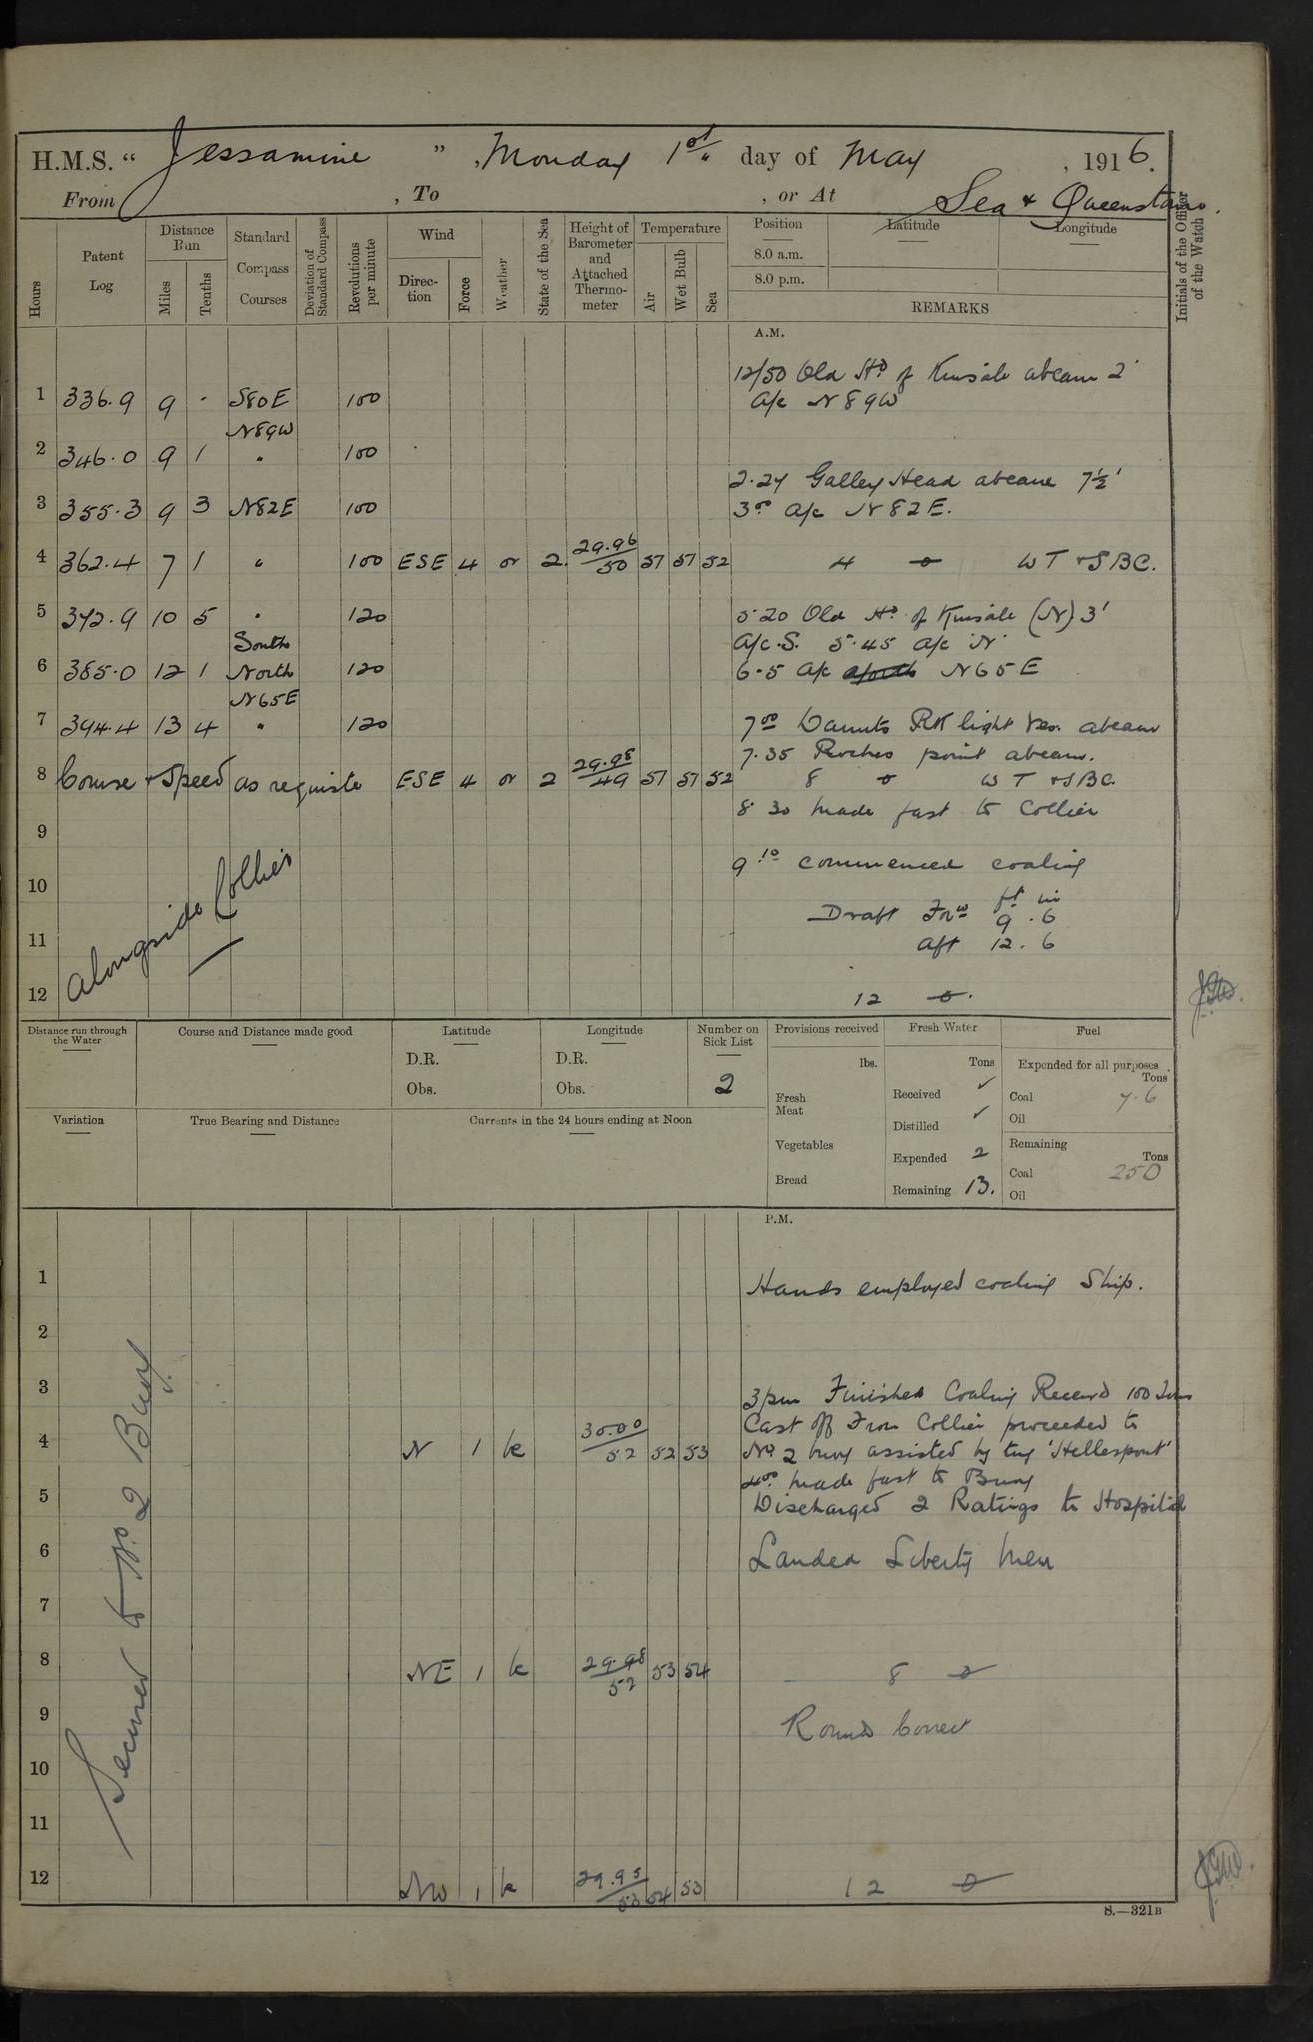 H.M.S. “ Jessamine ” , Monday 1st day of May , 1916.
From , To , or At Sea & Queenstown.
Hours
Patent Log
Distance Run
Miles
Tenths
Standard Compass Courses
Deviation of Standard Compass
Revolutions per minute
Wind
Direction
Force
Weather
State of the Sea
Height of Barometer and Attached Thermometer
Temperature
Air
Wet Bulb
Sea
Position
Latitude
Longitude
8.0 a.m.
8.0 p.m.
REMARKS
Initials of the Officer of the Watch
A.M.
12/50 Old Hd of Kinsale abeam 2'
1 336.9 9 · S80E 100 a/c N89W
N89W
2 346.0 9 1 " 100
2.24 Galley Head abeam 7½'
3 355.3 9 3 N82E 100 3.00 a/c N82E.
4 362.4 7 1 " 100 ESE 4 or 2 29.96/50 51 51 52 4 WT & SBC.
5 372.9 10 5 " 120 5.20 Old Hd of Kinsale (N) 3'
South a/c.S. 5.45 a/c N
6 385.0 12 1 North 120 6.5 a/c N65E
N65E
7 394.4 13 4 " 120 7.00 Daunts Rk light Ves. abeam
7.35 Roches point abeam.
8 Course & Speed as requisite ESE 4 or 2 29.98/49 51 51 52 8 WT & SBC.
8.30 made fast to Collier
9
9.10 commenced coaling
10
ft in
Draft Forwd 9.6
11 aft 12.6
alongside Collier
12 12
Distance run through the Water
Course and Distance made good
Latitude
D.R.
Obs.
Longitude
D.R.
Obs.
Number on Sick List
2
Provisions received
lbs.
Fresh Meat
Vegetables
Bread
Fresh Water
Tons
Received ✓
Distilled ✓
Expended 2
Remaining 13.
Fuel
Expended for all purposes
Tons
Coal 7.6
Oil
Remaining
Tons
Coal 250
Oil
Variation
True Bearing and Distance
Currents in the 24 hours ending at Noon
P.M.
1 Hands employed coaling Ship.
2
3 3pm Finished Coaling Received 100 Tons
Cast off From Collier proceeded to
4 N 1 bc 30.00/52 52 53 No 2 buoy assisted by tug 'Hellespont'
4.00 made fast to Buoy
5 Discharged 2 Ratings to Hospital
6 Landed Liberty Men
7
8 NE 1 bc 29.98/52 53 54 8
9 Rounds Correct
10
11
Secured to No 2 Buoy
12 NW 1 bc 29.95/53 54 53 12
S.—321B